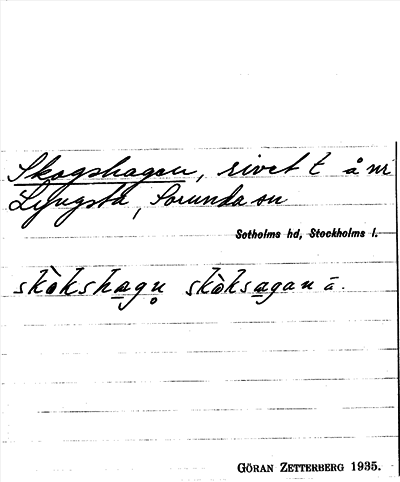 Skogshagen, rivet t å nr
Ljungsta, Sorunda sn
Sotholms hd, Stockholms l.
skò̀kshagn̥ skòksagan ā.
GÖRAN ZETTERBERG 1935.